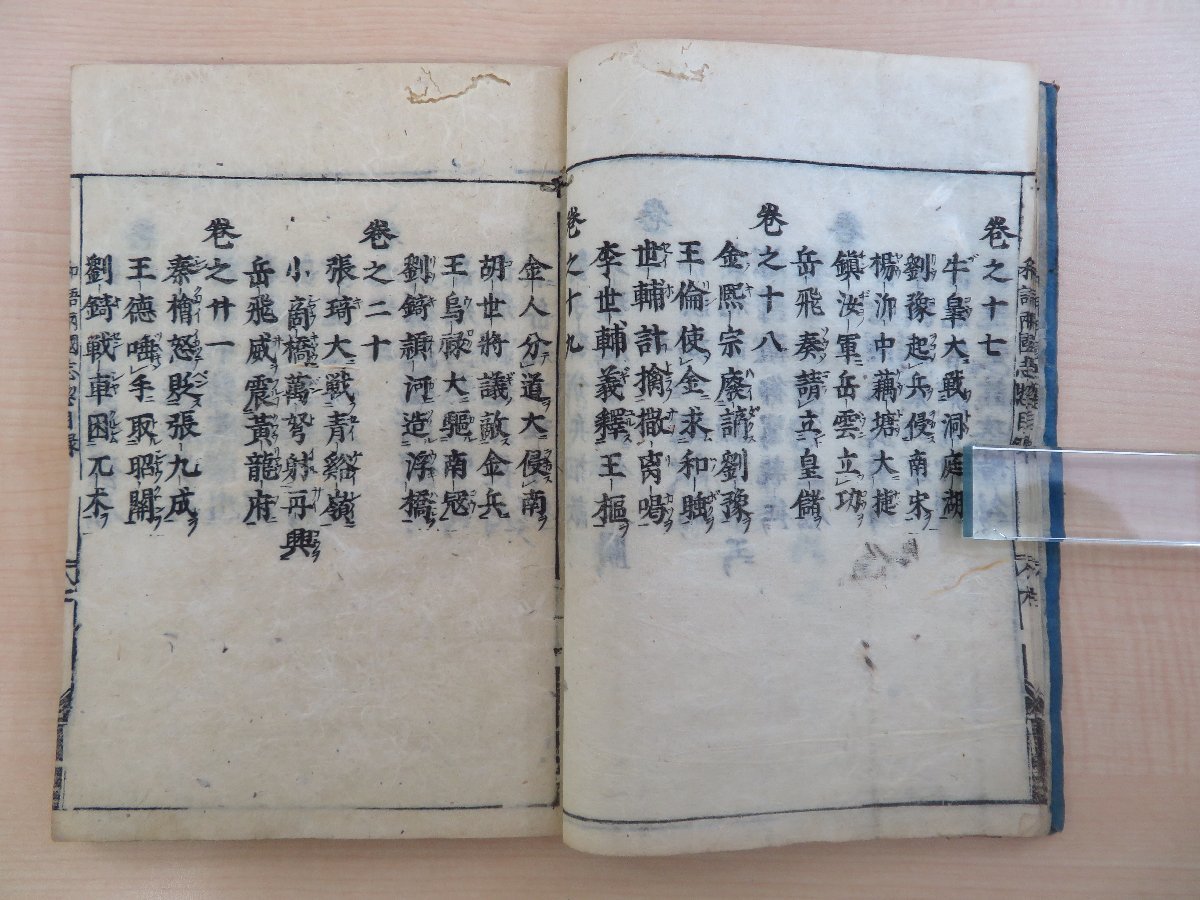 卷之十七
牛皇大戰洞庭湖
劉豫起兵侵南宋
楊沂中藕塘大捷
鎮汝軍岳雲立功
岳飛奏請立皇儲
卷之十八
金熙宗廢謫劉豫
王倫使金求和議
世輔計擒撒离喝
李世輔義釋王樞
卷之十九
金人分道大侵南
胡世將議敵金兵
王烏祿大驅南冦
劉錡頴河造浮橋
卷之二十
張琦大戰青谿嶺
小商橋萬弩射再興
岳飛威震黃龍府
卷之廿一
秦檜怒貶張九成
王德唾手取昭關
劉錡戰車困兀朮